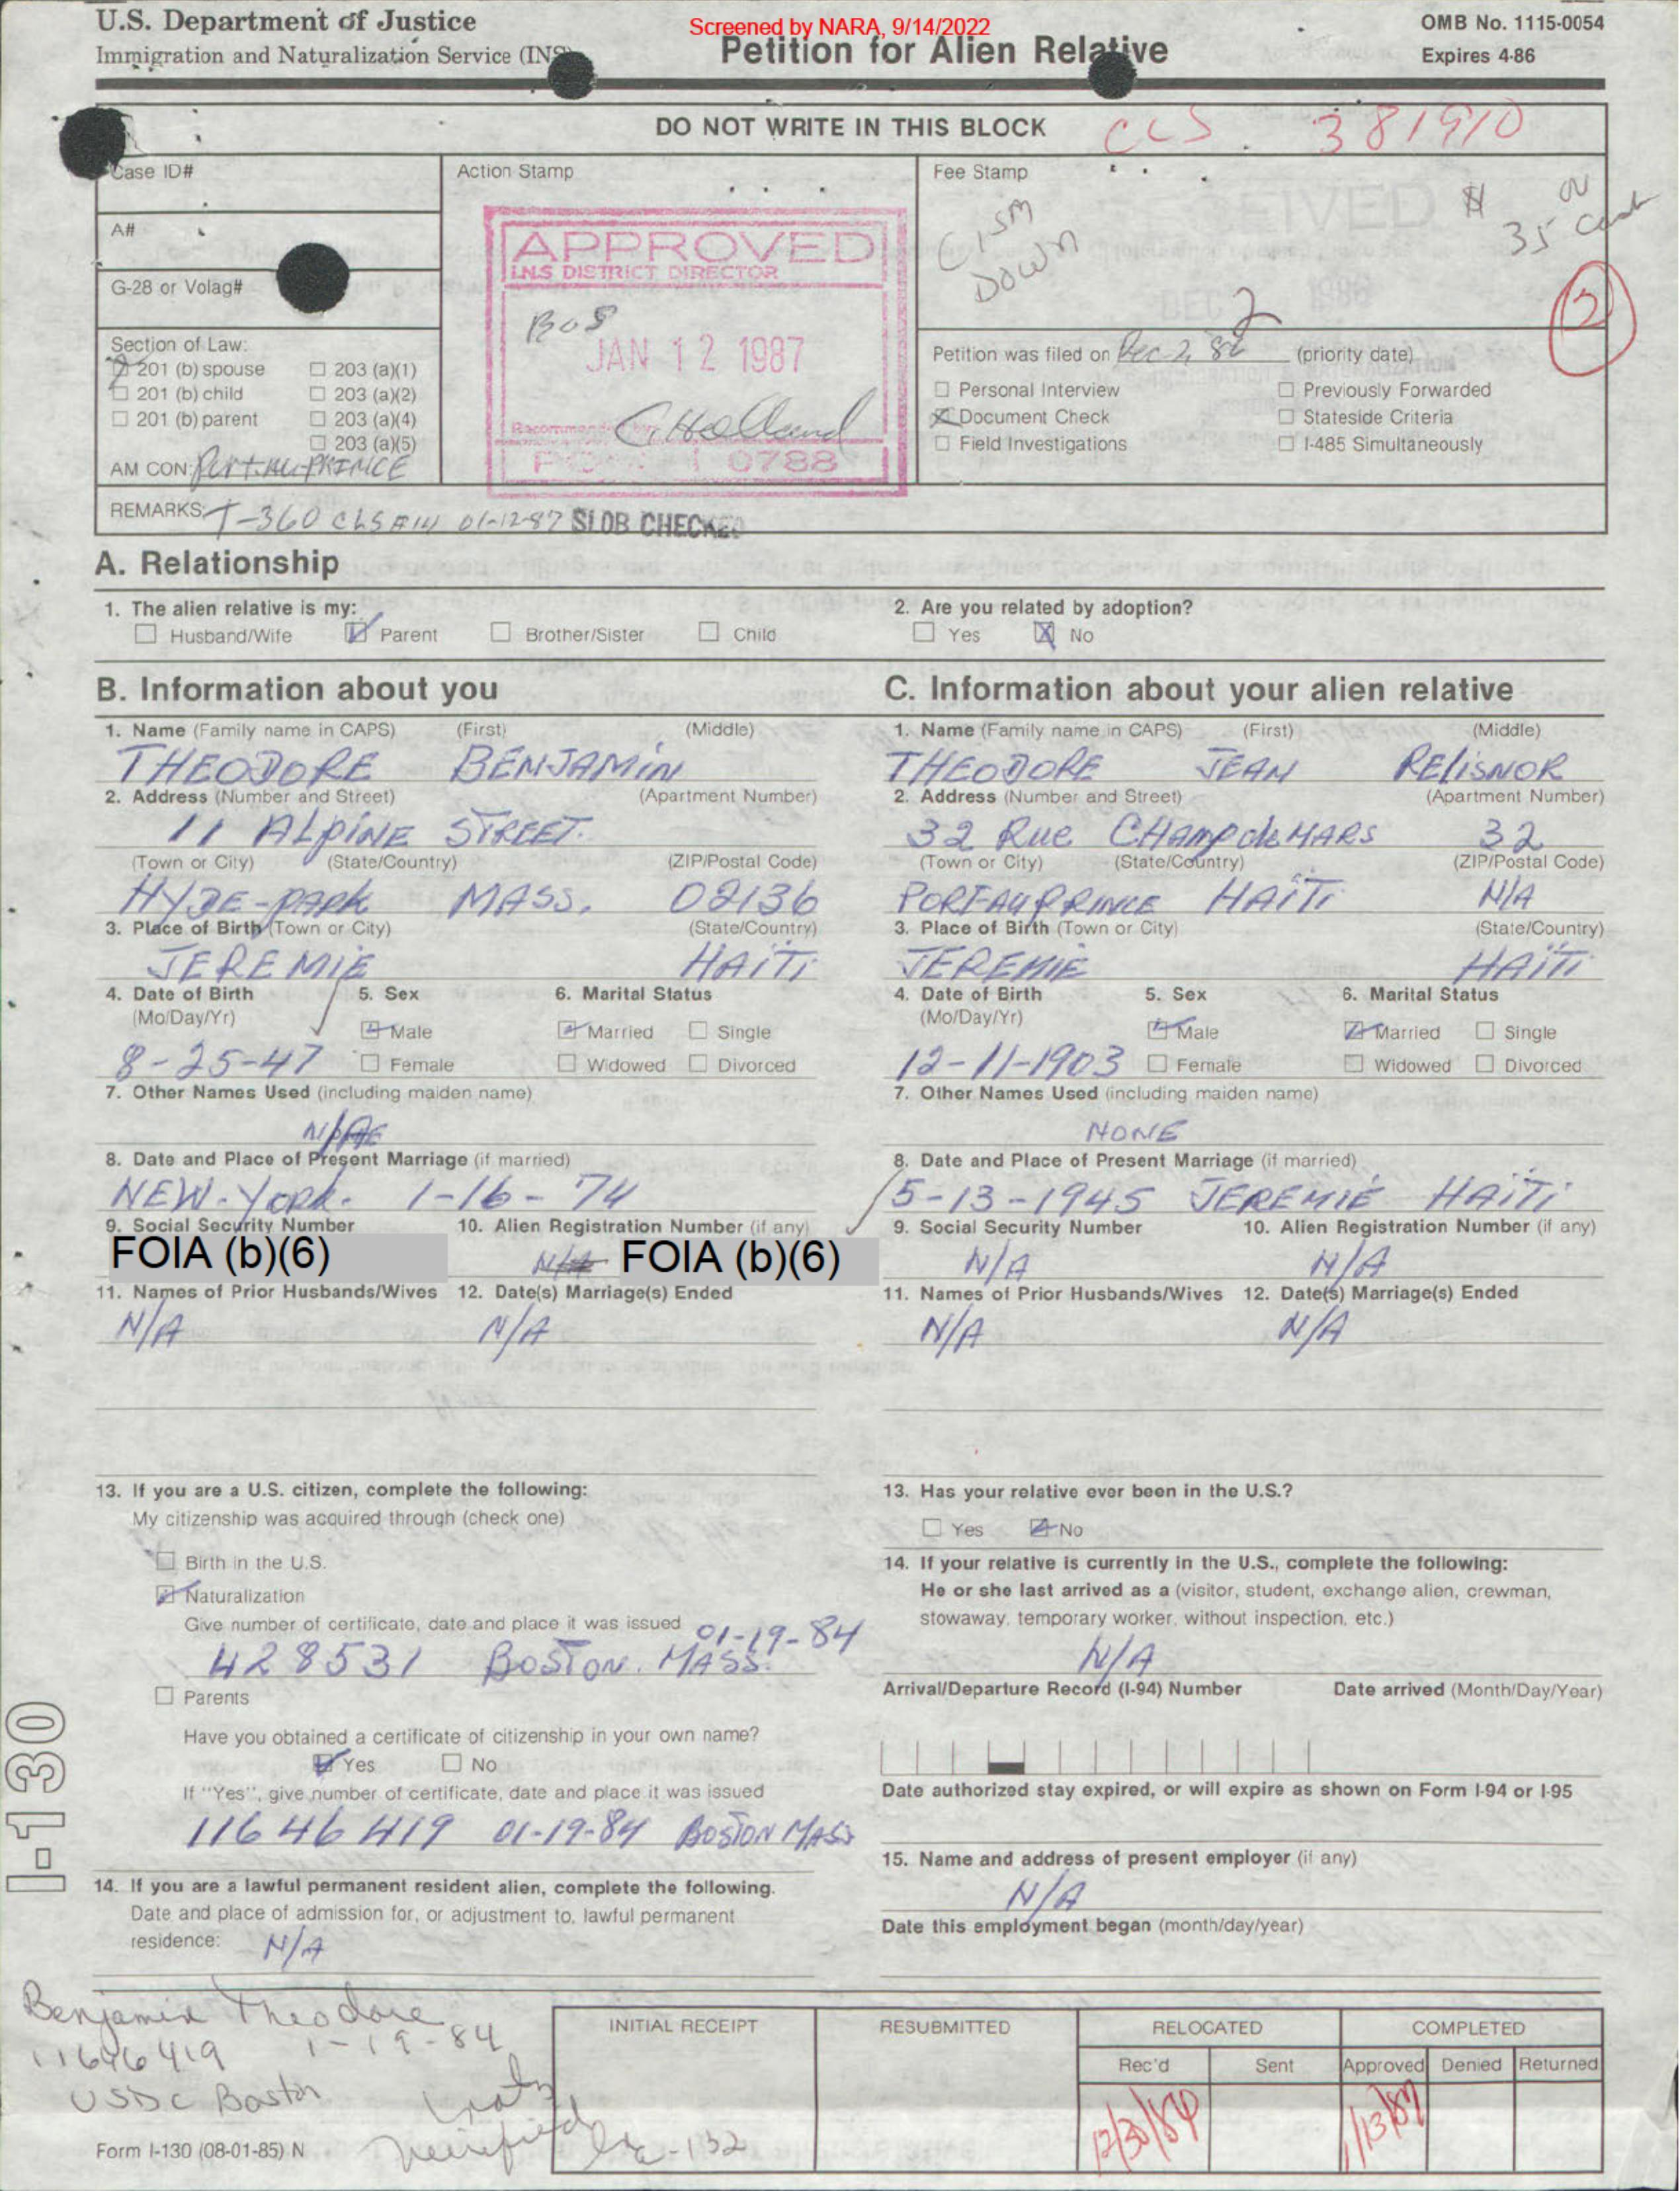 U.S. Department of Justice
Immigration and Naturalization Service (INS)
Screened by NARA, 9/14/2022
Petition for Alien Relative
OMB No. 1115-0054
Expires 4-86
DO NOT WRITE IN THIS BLOCK
CLS. 381910
Case ID#
A#
G-28 or Volag#
Section of Law:
201 (b) spouse
203 (a)(1)
201 (b) child
203 (a)(2)
201 (b) parent
203 (a)(4)
203 (a)(5)
AM CON: Port-Au-PRINCE
Action Stamp
APPROVED
I.N.S DISTRICT DIRECTOR
BOS
JAN 12 1987
0788
Fee Stamp
Down
$ 35
2
Petition was filed on Dec 2, 86 (priority date)
Personal Interview
Previously Forwarded
Document Check
Stateside Criteria
Field Investigations
I-485 Simultaneously
REMARKS: T-360 CLS #14 01-12-87 SLOB CHECKED
A. Relationship
1. The alien relative is my:
Husband/Wife Parent Brother/Sister Child
2. Are you related by adoption?
Yes No
B. Information about you
1. Name (Family name in CAPS) (First) (Middle)
THEODORE BENJAMIN
2. Address (Number and Street) (Apartment Number)
11 ALPINE STREET.
(Town or City) (State/Country) (ZIP/Postal Code)
HYDE-PARK MASS. 02136
3. Place of Birth (Town or City) (State/Country)
JEREMIE HAÏTI
4. Date of Birth 5. Sex 6. Marital Status
(Mo/Day/Yr)
Male Married Single
8-25-47 Female Widowed Divorced
7. Other Names Used (including maiden name)
8. Date and Place of Present Marriage (if married)
NEW-YORK. 1-16-74
9. Social Security Number 10. Alien Registration Number (if any)
FOIA (b)(6) N/A FOIA (b)(6)
11. Names of Prior Husbands/Wives 12. Date(s) Marriage(s) Ended
N/A N/A
13. If you are a U.S. citizen, complete the following:
My citizenship was acquired through (check one)
Birth in the U.S.
Naturalization
Give number of certificate, date and place it was issued
01-19-84
428531 BOSTON. MASS.
Parents
Have you obtained a certificate of citizenship in your own name?
Yes No
If "Yes", give number of certificate, date and place it was issued
11646419 01-19-84 BOSTON MASS
14. If you are a lawful permanent resident alien, complete the following.
Date and place of admission for, or adjustment to, lawful permanent
residence: N/A
C. Information about your alien relative
1. Name (Family name in CAPS) (First) (Middle)
THEODORE JEAN RELISNOR
2. Address (Number and Street) (Apartment Number)
32 Rue CHAMP de MARS 32
(Town or City) (State/Country) (ZIP/Postal Code)
PORT-AU PRINCE HAÏTI N/A
3. Place of Birth (Town or City) (State/Country)
JEREMIE HAÏTI
4. Date of Birth 5. Sex 6. Marital Status
(Mo/Day/Yr)
Male Married Single
12-11-1903 Female Widowed Divorced
7. Other Names Used (including maiden name)
NONE
8. Date and Place of Present Marriage (if married)
5-13-1945 JEREMIE HAÏTI
9. Social Security Number 10. Alien Registration Number (if any)
N/A N/A
11. Names of Prior Husbands/Wives 12. Date(s) Marriage(s) Ended
N/A N/A
13. Has your relative ever been in the U.S.?
Yes No
14. If your relative is currently in the U.S., complete the following:
He or she last arrived as a (visitor, student, exchange alien, crewman,
stowaway, temporary worker, without inspection, etc.)
N/A
Arrival/Departure Record (I-94) Number Date arrived (Month/Day/Year)
Date authorized stay expired, or will expire as shown on Form I-94 or I-95
15. Name and address of present employer (if any)
N/A
Date this employment began (month/day/year)
I-130
Benjamin Theodore
11646419 1-19-84
USDC Boston
Form I-130 (08-01-85) N
INITIAL RECEIPT RESUBMITTED RELOCATED COMPLETED
Rec'd Sent Approved Denied Returned
12/30/86 1/13/87